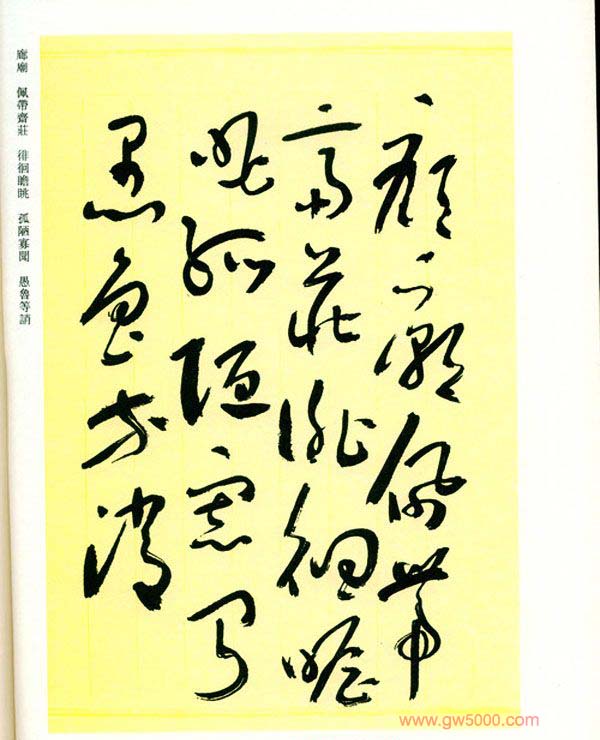 廊廟佩帶
齋莊徘徊瞻
眺孤陋寡聞
愚魯等誚
廊廟 佩帶齋莊 徘徊瞻眺 孤陋寡聞 愚魯等誚
www.gw5000.com